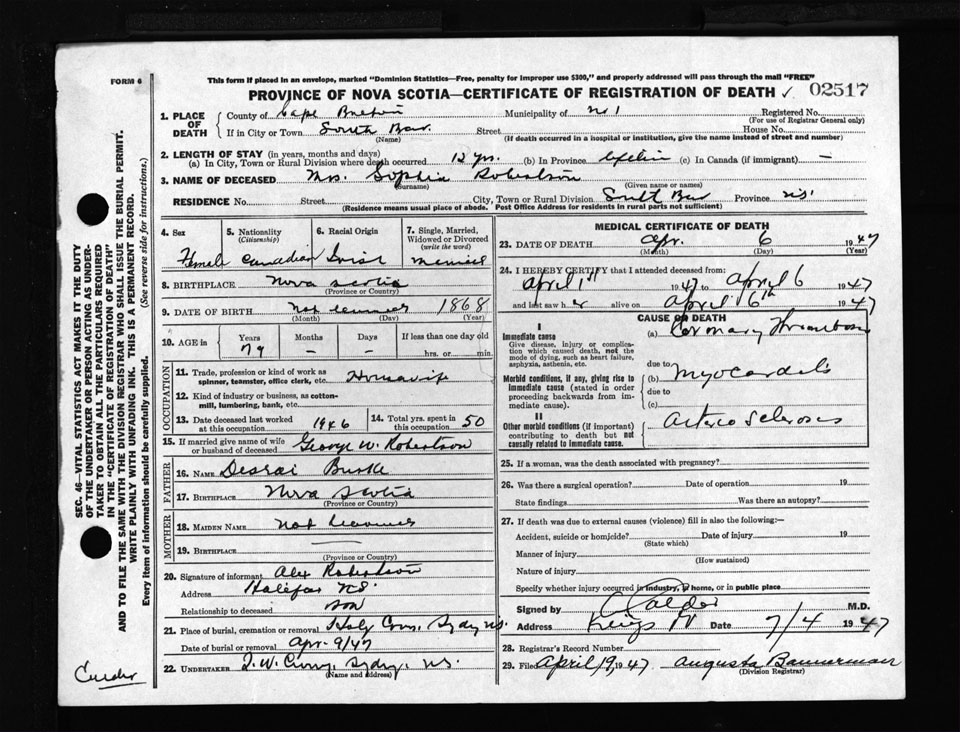 FORM 6
This form if placed in an envelope, marked "Dominion Statistics—Free, penalty for improper use $300," and properly addressed will pass through the mail "FREE"
PROVINCE OF NOVA SCOTIA—CERTIFICATE OF REGISTRATION OF DEATH ✓ 02517
1. PLACE OF DEATH
County of Cape Breton Municipality of No 1 Registered No.
(For use of Registrar General only)
If in City or Town South Bar Street House No.
(Name) (If death occurred in a hospital or institution, give the name instead of street and number)
2. LENGTH OF STAY (in years, months and days)
(a) In City, Town or Rural Division where death occurred 12 yrs. (b) In Province Lifetime (c) In Canada (if immigrant) —
3. NAME OF DECEASED Mrs. Sophia Robertson
(Surname) (Given name or names)
RESIDENCE No. Street City, Town or Rural Division South Bar Province N.S.
(Residence means usual place of abode. Post Office Address for residents in rural parts not sufficient)
4. Sex Female
5. Nationality (Citizenship) Canadian
6. Racial Origin Irish
7. Single, Married, Widowed or Divorced (write the word) Married
8. BIRTHPLACE Nova Scotia
(Province or Country)
9. DATE OF BIRTH Not 1868
(Month) (Day) (Year)
10. AGE in Years 79 Months — Days — If less than one day old hrs. or min.
OCCUPATION
11. Trade, profession or kind of work as spinner, teamster, office clerk, etc. Housewife
12. Kind of industry or business, as cotton-mill, lumbering, bank, etc.
13. Date deceased last worked at this occupation 1946
14. Total yrs. spent in this occupation 50
15. If married give name of wife or husband of deceased George W. Robertson
FATHER
16. NAME Burke
17. BIRTHPLACE Nova Scotia
(Province or Country)
MOTHER
18. MAIDEN NAME Not
19. BIRTHPLACE —
(Province or Country)
20. Signature of informant Alex Robertson
Address Halifax N.S.
Relationship to deceased son
21. Place of burial, cremation or removal Holy Cross, Sydney N.S.
Date of burial or removal Apr. 9/47
22. UNDERTAKER Sydney, N.S.
(Name and address)
MEDICAL CERTIFICATE OF DEATH
23. DATE OF DEATH Apr. 6 1947
(Month) (Day) (Year)
24. I HEREBY CERTIFY that I attended deceased from:
April 1st 1947 to April 6 1947
and last saw her alive on April 6th 1947
CAUSE OF DEATH
I
Immediate cause
Give disease, injury or complication which caused death, not the mode of dying, such as heart failure, asphyxia, asthenia, etc.
(a) Coronary Thrombosis
due to
Morbid conditions, if any, giving rise to immediate cause (stated in order proceeding backwards from immediate cause).
(b) Myocarditis
due to
(c)
II
Other morbid conditions (if important) contributing to death but not causally related to immediate cause.
Arterio Sclerosis
25. If a woman, was the death associated with pregnancy?
26. Was there a surgical operation? Date of operation 19
State findings Was there an autopsy?
27. If death was due to external causes (violence) fill in also the following:—
Accident, suicide or homicide? Date of injury 19
(State which)
Manner of injury
(How sustained)
Nature of injury
Specify whether injury occurred in industry, in home, or in public place
Signed by Calder M.D.
Address Date 7/4 1947
28. Registrar's Record Number
29. Filed April 19, 1947 Augusta Bannerman
(Division Registrar)
SEC. 46—VITAL STATISTICS ACT MAKES IT THE DUTY
OF THE UNDERTAKER OR PERSON ACTING AS UNDER-
TAKER TO OBTAIN ALL THE PARTICULARS REQUIRED
IN THE "CERTIFICATE OF REGISTRATION OF DEATH"
AND TO FILE THE SAME WITH THE DIVISION REGISTRAR WHO SHALL ISSUE THE BURIAL PERMIT.
WRITE PLAINLY WITH UNFADING INK. THIS IS A PERMANENT RECORD.
Every item of information should be carefully supplied. (See reverse side for instructions.)